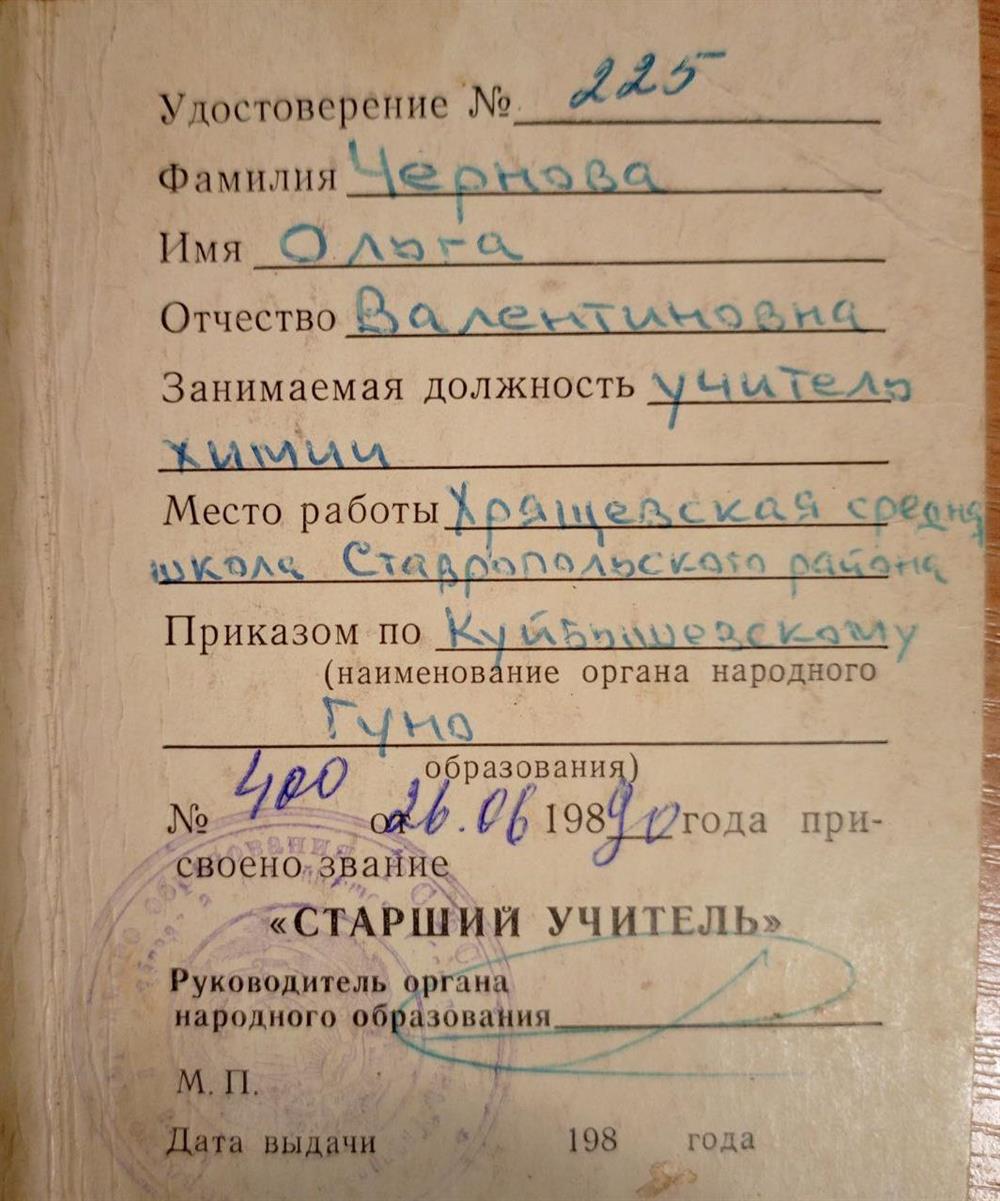 Удостоверение № 225
Фамилия Чернова
Имя Ольга
Отчество Валентиновна
Занимаемая должность учитель
химии
Место работы Хрящевская средня
школа Ставропольского района
Приказом по Куйбышевскому
(наименование органа народного
Гуно
образования)
№ 400 от 26.06 198 90 года при-
своено звание
«СТАРШИЙ УЧИТЕЛЬ»
Руководитель органа
народного образования
М. П.
Дата выдачи 198 года